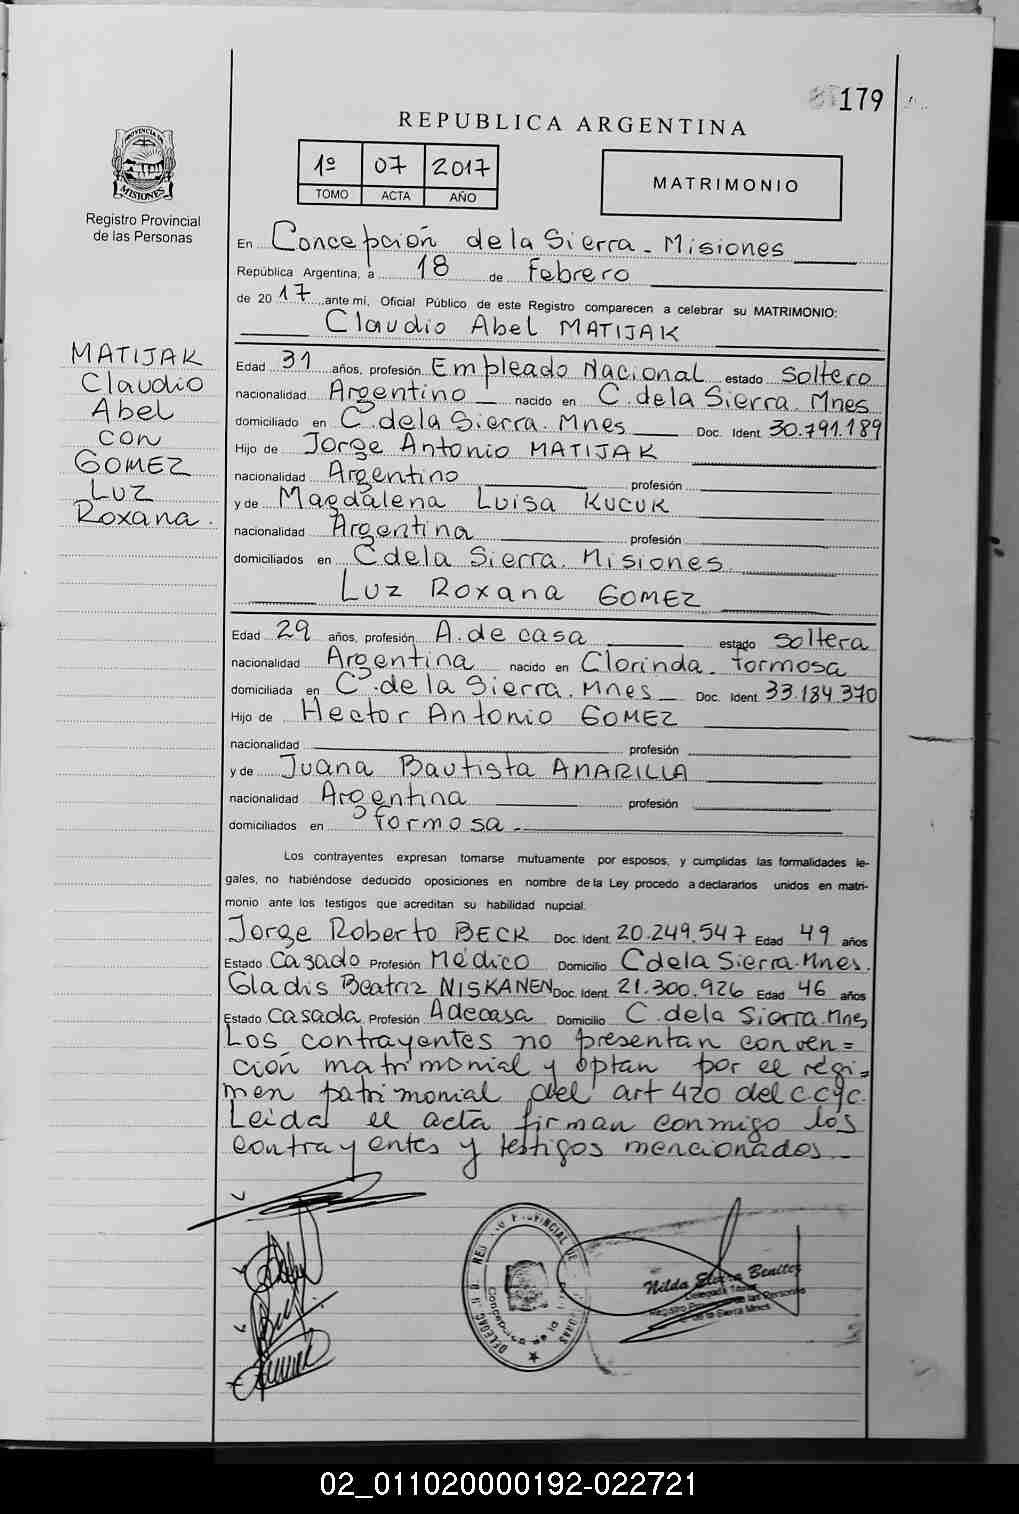 179
REPUBLICA ARGENTINA
PROVINCIA DE
MISIONES
Registro Provincial
de las Personas
1º 07 2017
TOMO ACTA AÑO
MATRIMONIO
En Concepción de la Sierra - Misiones
República Argentina, a 18 de Febrero
de 2017, ante mí, Oficial Público de este Registro comparecen a celebrar su MATRIMONIO:
Claudio Abel MATIJAK
MATIJAK
Claudio
Abel
con
GOMEZ
LUZ
Roxana.
Edad 31 años, profesión Empleado Nacional estado soltero
nacionalidad Argentino nacido en C. dela Sierra. Mnes
domiciliado en C. dela Sierra. Mnes Doc. Ident. 30.791.189
Hijo de Jorge Antonio MATIJAK
nacionalidad Argentino profesión
y de Magdalena Luisa KUCUK
nacionalidad Argentina profesión
domiciliados en C dela Sierra. Misiones
Luz Roxana GOMEZ
Edad 29 años, profesión A. de casa estado soltera
nacionalidad Argentina nacido en Clorinda - Formosa
domiciliada en C. de la Sierra. Mnes Doc. Ident. 33.184.370
Hija de Hector Antonio GOMEZ
nacionalidad profesión
y de Juana Bautista AMARILLA
nacionalidad Argentina profesión
domiciliados en Formosa
Los contrayentes expresan tomarse mutuamente por esposos, y cumplidas las formalidades le-
gales, no habiéndose deducido oposiciones en nombre de la Ley procedo a declararlos unidos en matri-
monio ante los testigos que acreditan su habilidad nupcial.
Jorge Roberto BECK Doc. Ident. 20.249.547 Edad 49 años
Estado Casado Profesión Médico Domicilio C dela Sierra. Mnes.
Gladis Beatriz NISKANEN Doc. Ident. 21.300.926 Edad 46 años
Estado Casada Profesión A de casa Domicilio C. dela Sierra. Mnes
Los contrayentes no presentan conven=
ción matrimonial y optan por el régi=
men patrimonial del art 420 del c.cyc.
Leída el acta firman conmigo los
contrayentes y testigos mencionados
Nilda Benitez
02_011020000192-022721